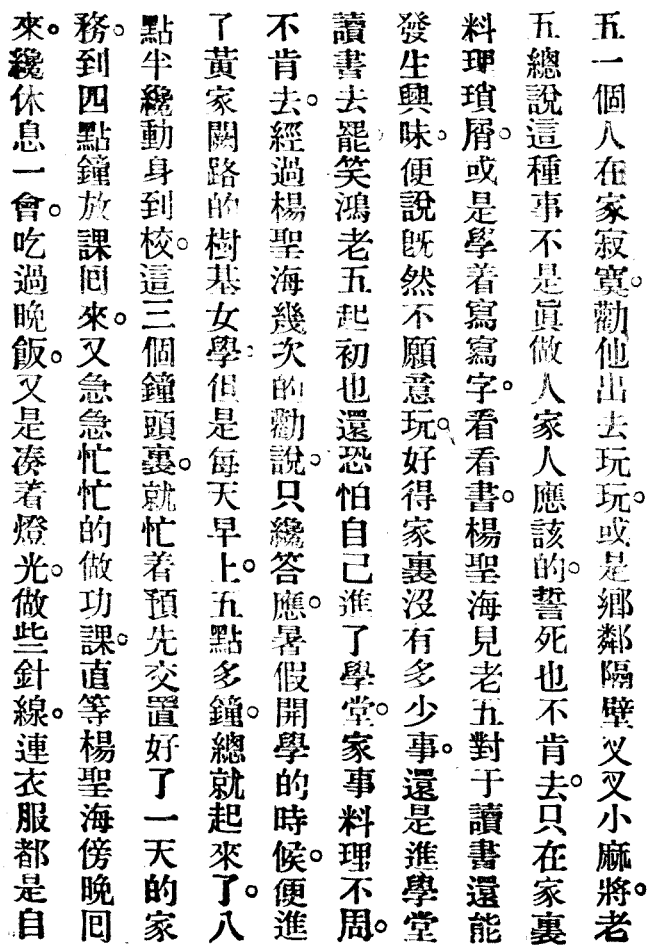 五一個人在家寂寞。勸他出去玩玩。或是鄉鄰隔壁叉叉小麻將。老
五總說這種事不是眞做人家人應該的。誓死也不肯去。只在家裏
料理瑣屑。或是學着寫寫字。看看書。楊聖海見老五對于讀書還能
發生興味。便說旣然不願意玩。好得家裏沒有多少事。還是進學堂
讀書去罷。笑鴻老五起初也還恐怕自己進了學堂。家事料理不周。
不肯去。經過楊聖海幾次的勸說。只纔答應。暑假開學的時候。便進
了黃家闕路的樹基女學。但是每天早上。五點多鐘。總就起來了。八
點半纔動身到校。這三個鐘頭裏。就忙着預先交置好了一天的家
務。到四點鐘放課囘來。又急急忙忙的做功課。直等楊聖海傍晚囘
來。纔休息一會。吃過晚飯。又是凑着燈光。做些針線。連衣服都是自